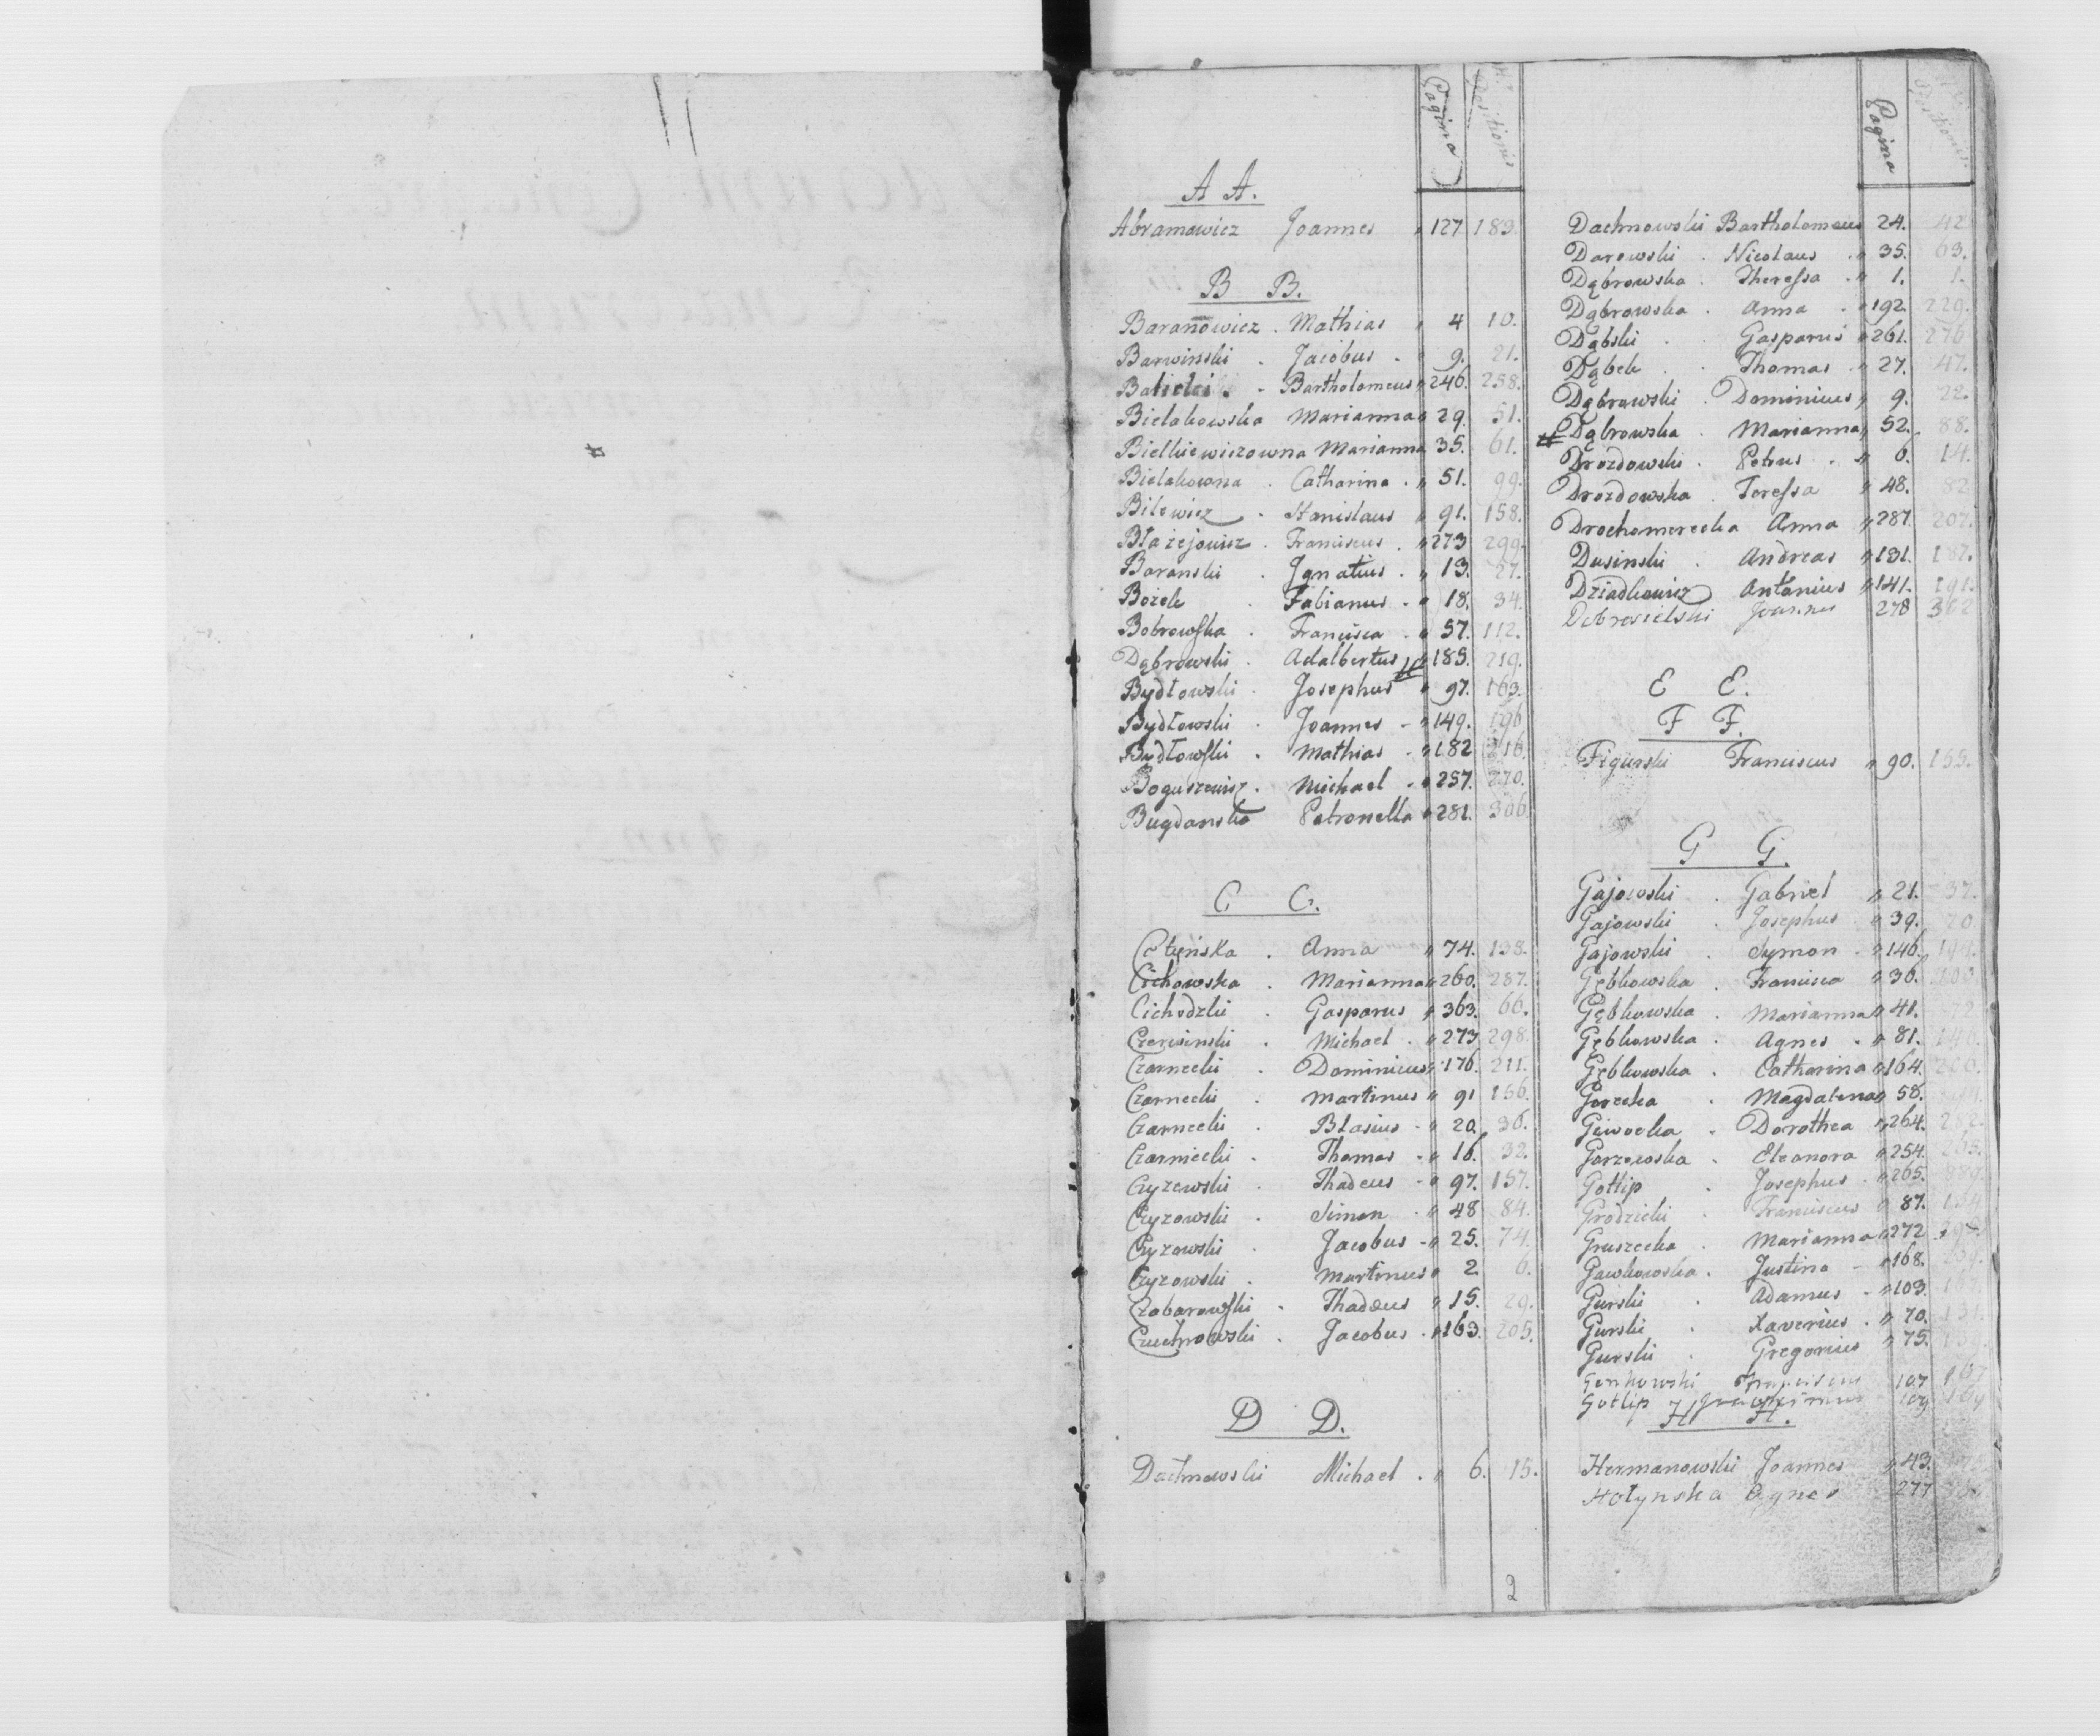 Pagina
Positionis
A A.
Abramowicz Joannes " 127 189
B B.
Baranowicz . Mathias " 4 10.
Barwinski . Jacobus . " 9. 21.
Balicki . Bartholomeus " 246. 258.
Bielakowska Marianna " 29. 51.
Bielkiewiczowna Marianna 35. 61.
Bielakowna . Catharina . " 51. 99.
Bilewicz . Stanislaus " 91. 158.
Błażejowicz . Franciscus . " 273 299.
Boranski . Ignatius . " 13. 27.
Bożek Fabianus . " 18. 34.
Bobrowska . Francisca . " 57. 112.
Dąbrowski . Adalbertus # " 189. 219.
Bydłowski . Josephus " 97. 163.
Bydłowski . Joannes - " 149. 196
Bydłowski . Mathias . " 182 216.
Boguszewicz . Michael . " 257. 270.
Bugdanska Petronella " 281. 306.
C C.
Anna " 74. 138.
Cichowska . Marianna " 260. 287.
Cichodzki . Gasparus " 363. 66.
Czerwinski . Michael . " 273 298.
Czarnecki . Dominicus " 176. 211.
Czarnecki . Martinus " 91 156.
Czarnecki . Blasius - " 20. 36.
Czarniecki . Thomas . " 16. 32.
Czyzewski . Thadeus - " 97. 157.
Czyzowski . Simon . " 48 84.
Czyzowski . Jacobus - " 25. 74.
Czyzowski . Martinus " 2. 6.
Czabarowski . Thadeus " 15. 29.
Czuchnowski . Jacobus . " 163. 205.
D D.
Dachnowski Michael . " 6. 15.
2
Pagina
Positionis
Dachnowski Bartholomeus 24. 42.
Darowski . Nicolaus . " 35. 63.
Dąbrowska . Theressa . " 1. 1.
Dąbrowska . Anna . " 192. 229.
Dąbski . Gasparus " 261. 276
Dąbek . Thomas . " 27. 47.
Dąbrowski . Dominicus " 9. 22.
# Dąbrowska . Marianna " 52. 88.
Drozdowski . Petrus . " 6. 14.
Drozdowska . Teressa " 48. 82
Drochomerecka Anna " 287. 207.
Dusinski . Andreas " 131. 187.
Dziadkowicz Antonius " 141. 191.
Dobrosielski Joannes 278 302
E E.
F F.
Figurski Franciscus " 90. 155.
G G.
Gajowski . Gabriel " 21. 37.
Gajowski . Josephus " 39. 70
Gajowski . Symon . " 146. 194.
Gębkowska . Francisca " 36. 100
Gębkowska . Marianna " 41. 72
Gębkowska . Agnes . " 81. 146.
Gębkowska . Catharina " 164. 206.
Gorecka . Magdalena " 58.
Giwocka . Dorothea " 264. 282.
Gorzewska . Eleonora " 254. 265.
Gotlip . Josephus . " 265. 289.
Grodzicki . Franciscus " 87. 154
Gruszecka . Marianna " 272
Gawkowska . Justina - " 168. 209.
Gurski . Adamus - " 103. 167.
Gurski . Xaverius . " 70. 131.
Gurski . Gregorius " 75. 139.
Genkowski Franciscus 107 167
Gotlip 109 169
H H.
Hermanowski Joannes " 43.
Hołynska Agnes 277